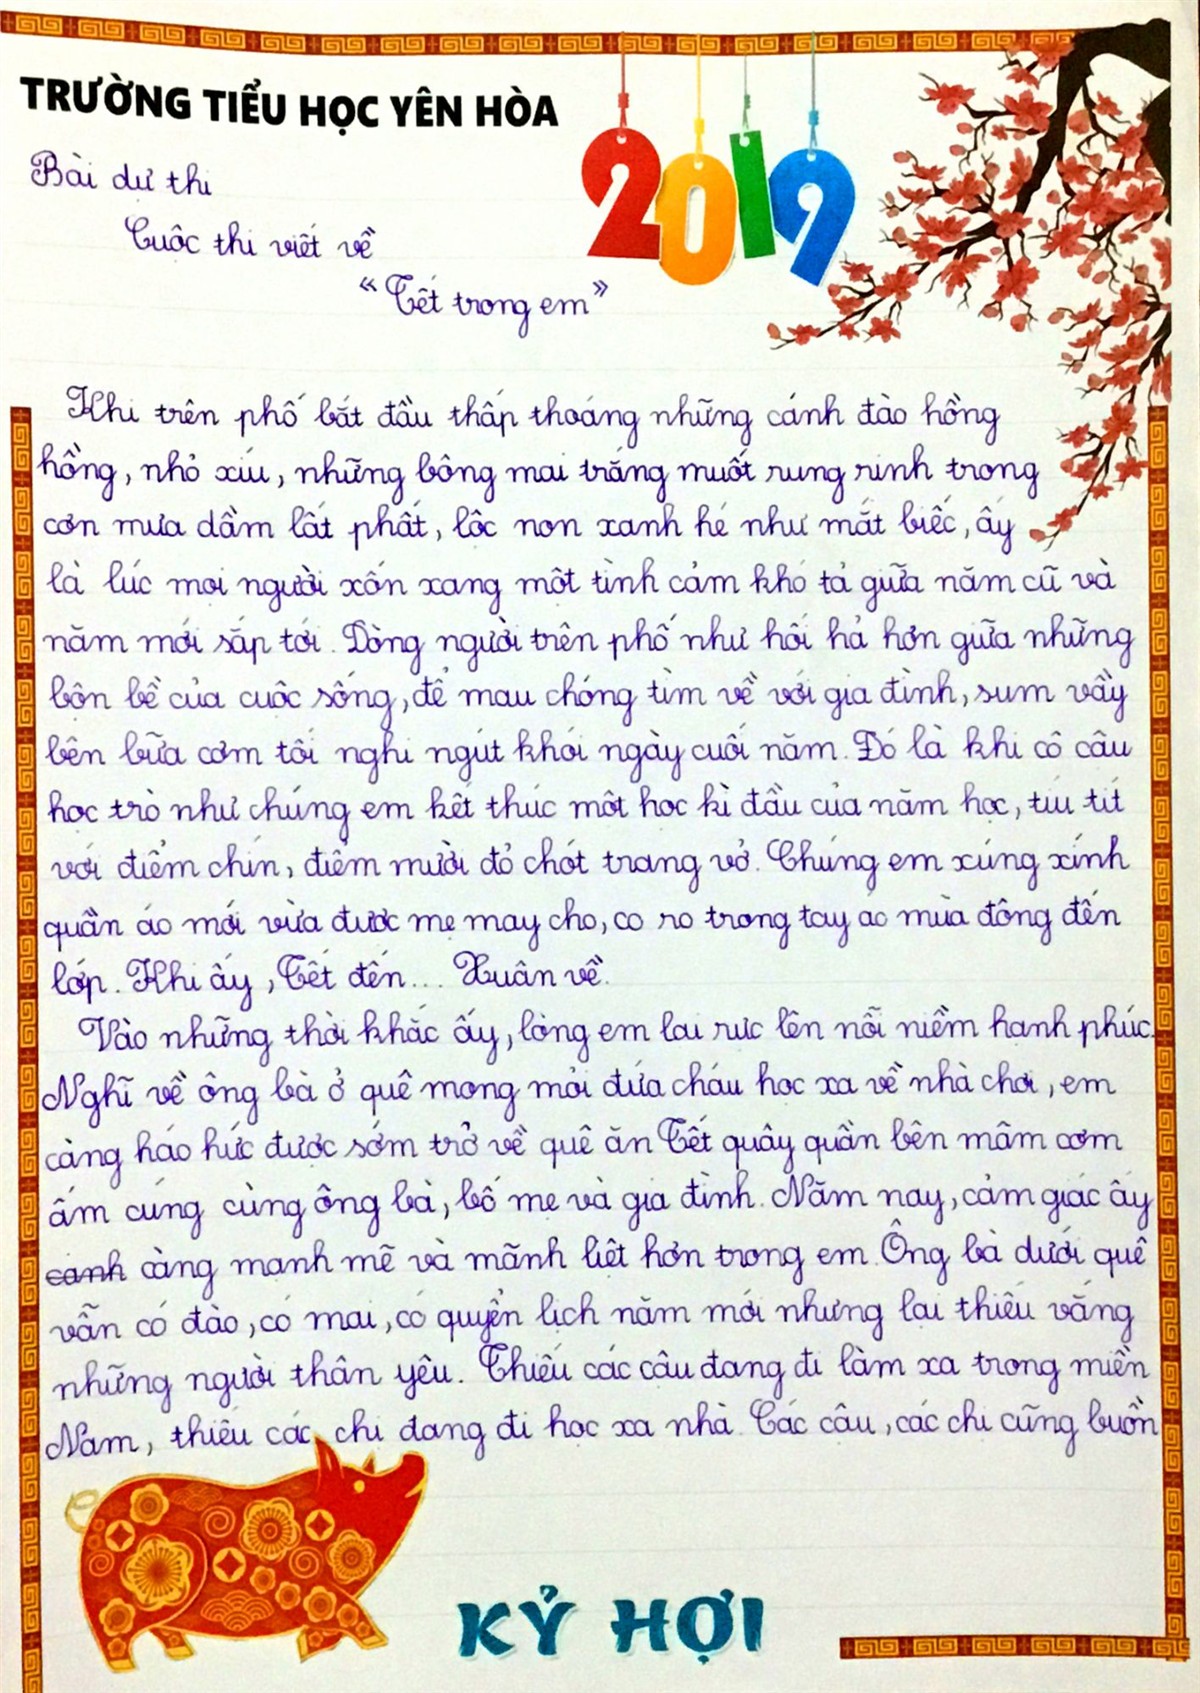 TRƯỜNG TIỂU HỌC YÊN HÒA
2019
Bài dự thi
Cuộc thi viết về
“Tết trong em”
Khi trên phố bắt đầu thấp thoáng những cánh đào hồng
hồng, nhỏ xíu, những bông mai trắng muốt rung rinh trong
cơn mưa dầm lất phất, lộc non xanh hé như mắt biếc, ấy
là lúc mọi người xốn xang một tình cảm khó tả giữa năm cũ và
năm mới sắp tới. Dòng người trên phố như hối hả hơn giữa những
bộn bề của cuộc sống, để mau chóng tìm về với gia đình, sum vầy
bên bữa cơm tối nghi ngút khói ngày cuối năm. Đó là khi cô cậu
học trò như chúng em kết thúc một học kì đầu của năm học, tíu tít
với điểm chín, điểm mười đỏ chót trang vở. Chúng em xúng xính
quần áo mới vừa được mẹ may cho, co ro trong tay áo mùa đông đến
lớp. Khi ấy, Tết đến... Xuân về.
Vào những thời khắc ấy, lòng em lại rực lên nỗi niềm hạnh phúc.
Nghĩ về ông bà ở quê mong mỏi đứa cháu học xa về nhà chơi, em
càng háo hức được sớm trở về quê ăn Tết quây quần bên mâm cơm
ấm cúng cùng ông bà, bố mẹ và gia đình. Năm nay, cảm giác ấy
canh càng mạnh mẽ và mãnh liệt hơn trong em. Ông bà dưới quê
vẫn có đào, có mai, có quyển lịch năm mới nhưng lại thiếu vắng
những người thân yêu. Thiếu các cậu đang đi làm xa trong miền
Nam, thiếu các chị đang đi học xa nhà. Các cậu, các chị cũng buồn
KỶ HỢI